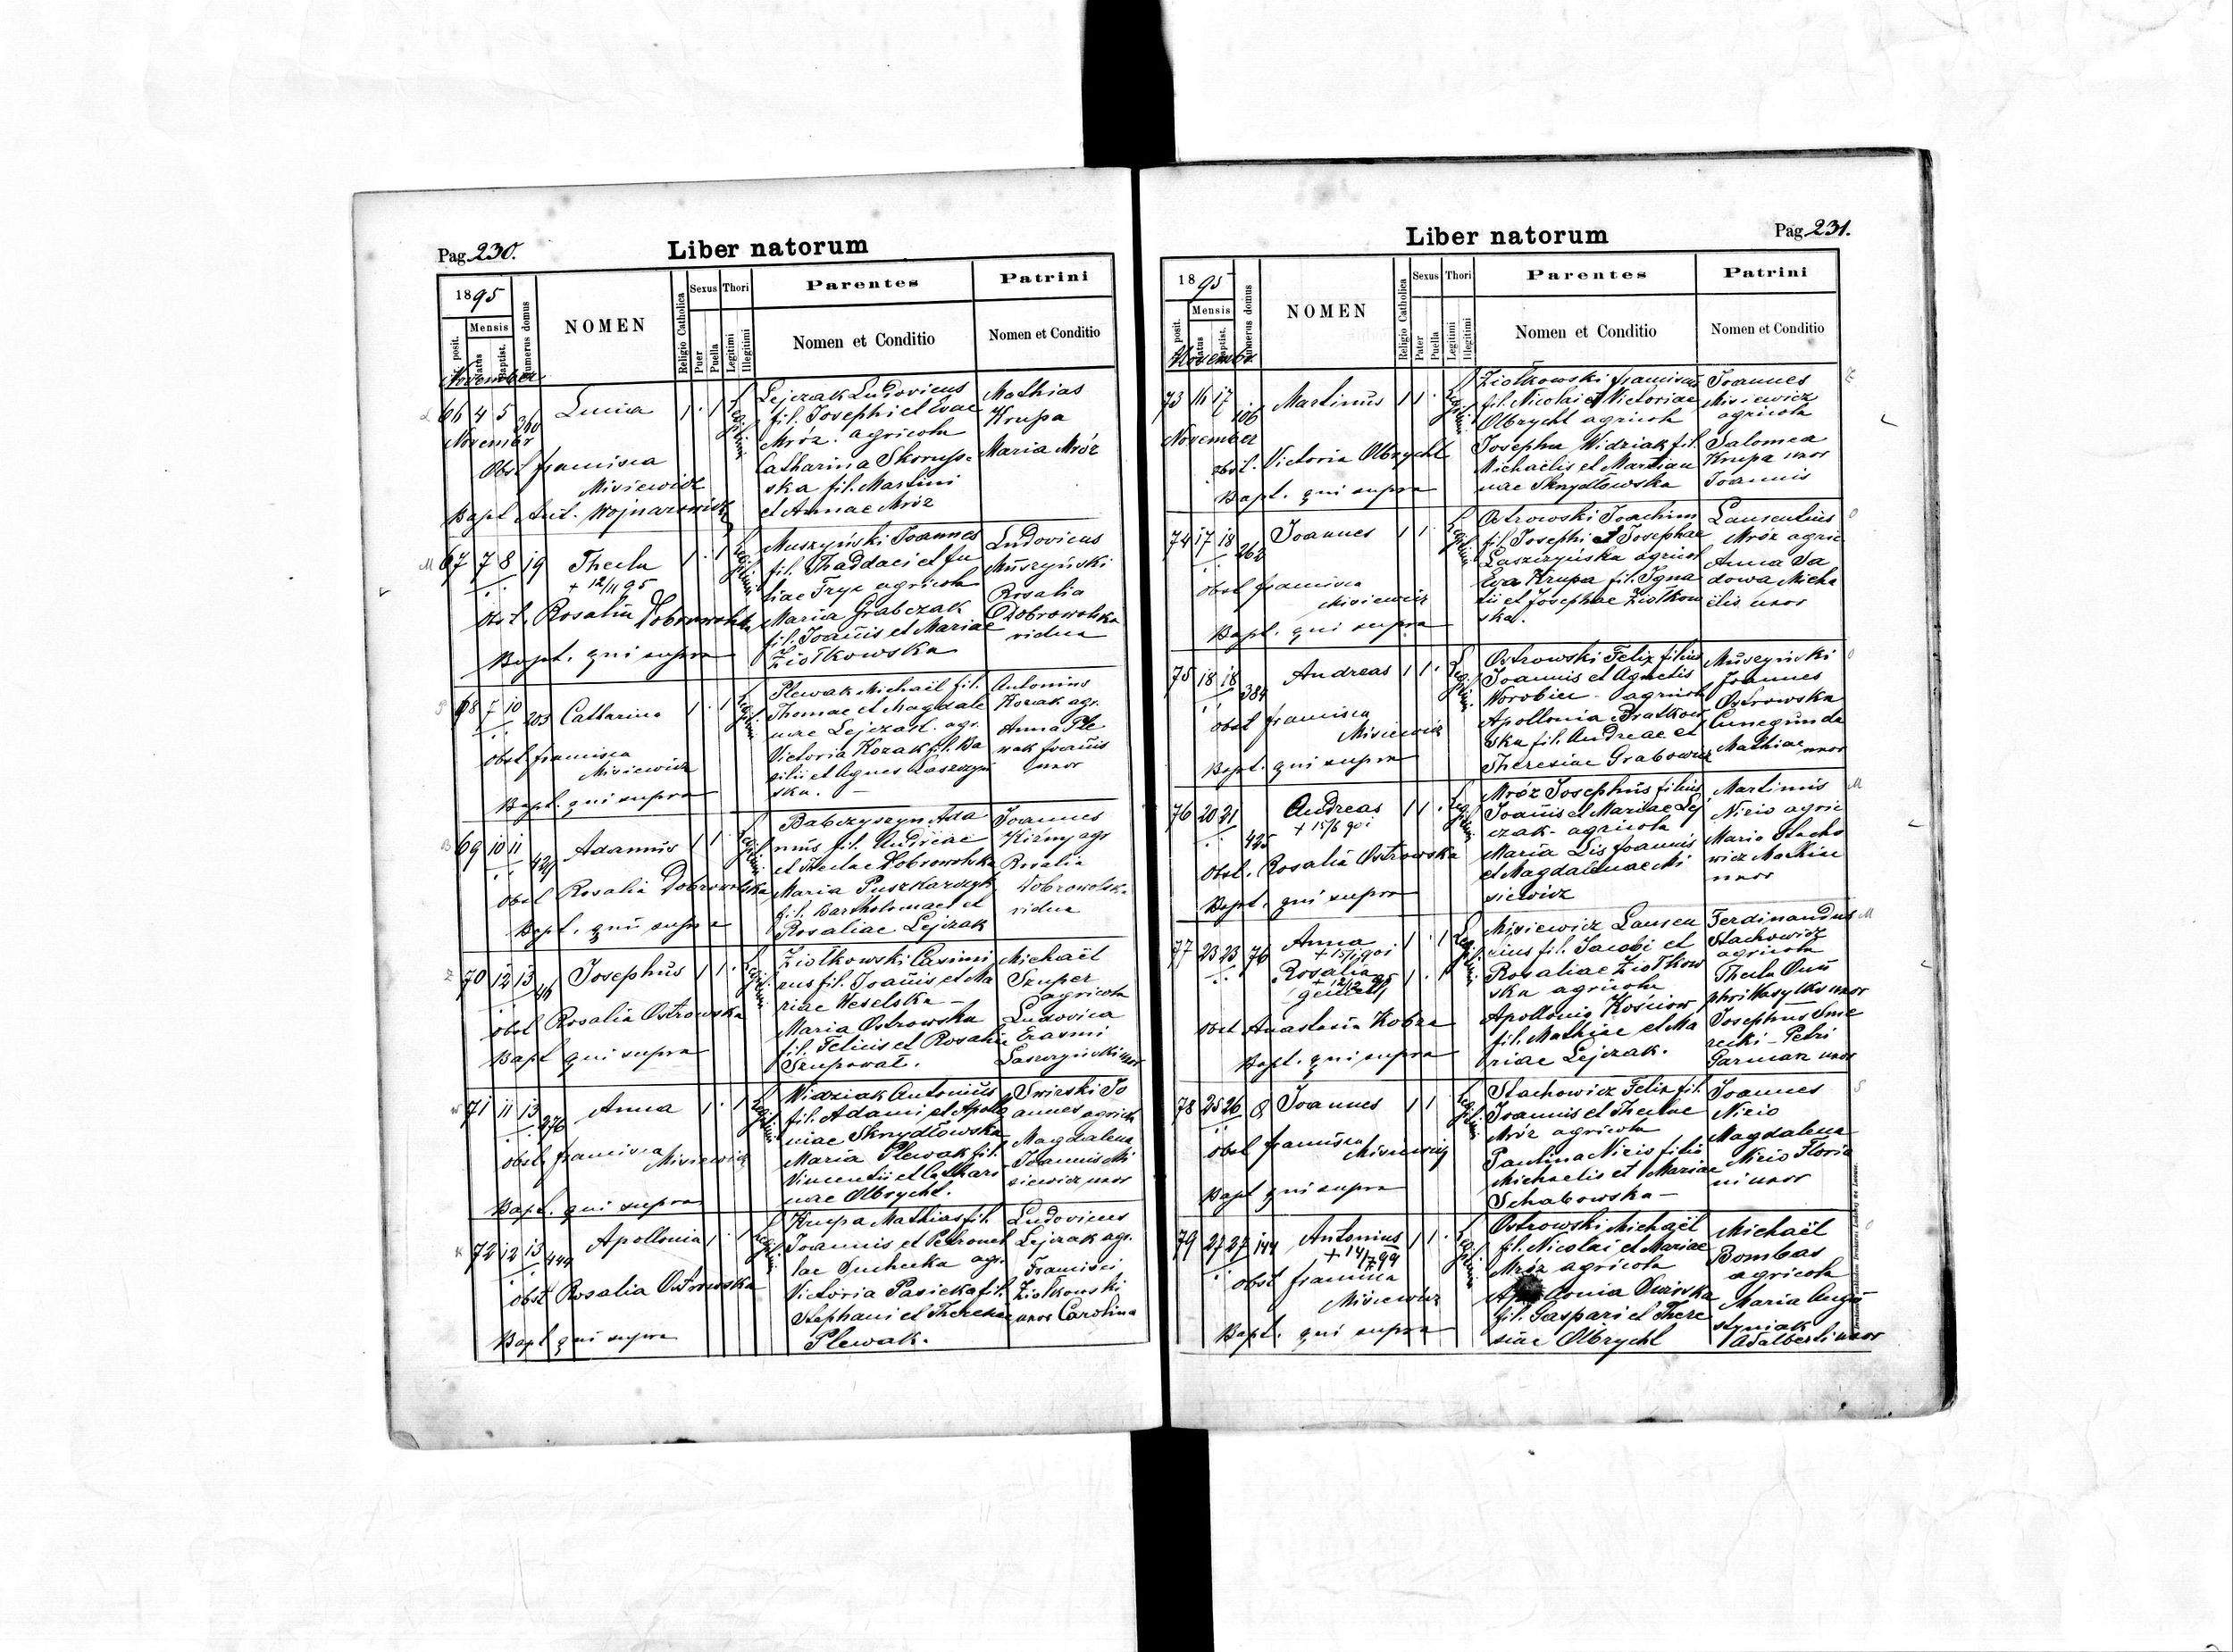 Pag. 230. Liber natorum
1895 NOMEN Religio Catholica Sexus Thori Parentes Patrini
posit. Mensis Natus Baptist. Numerus domus Puer Puella Legitimi Illegitimi Nomen et Conditio Nomen et Conditio
November
66 4 5 260 Lucia 1 . 1 Legitimi
Novembr
Obst Francisca
Misiewicz
Bapt Ant. Wojnarowicz
Lejczak Ludovicus
fil. Josephi et Evae
Mróz. agricola
Catharina Skorup-
ska fil. Martini
et Annae Mróz
Mathias
Krupa
Maria Mróz
M 67 7 8 19 Thecla 1 . 1 Legitimi
+ 12/11 95
Obst. Rosalia Dobrowolska
Bapt. qui supra
Muszyński Joannes
fil. Thaddaei et Ju
liae Fryc agricola
Maria Grabczak
fil. Joannis et Mariae
Ziołkowska
Ludovicus
Muszyński
Rosalia
Dobrowolska
vidua
P 68 7 10 203 Catharina 1 . 1 Legitimi
Obst Francisca
Misiewicz
Bapt. qui supra
Plewak Michaël fil.
Thomae et Magdale
nae Lejczak. agr.
Victoria Kozak fil. Ba
silii et Agnes Laszczyń
ska. -
Antonius
Kozak agr.
Anna Ple
wak Joannis
uxor
B 69 10 11 429 Adamus 1 1 . Legitimi
Obst Rosalia Dobrowolska
Bapt. qui supra
Babczyszyn Ada
mus fil. Andreae
et Theclae Dobrowolska
Maria Puszkarczyk
fil. Bartholomaei et
Rosaliae Lejczak
Joannes
Kirny agr
Rosalia
Dobrowolska
vidua
Z 70 12 13 46 Josephus 1 1 . Legitimi
Obst Rosalia Ostrowska
Bapt qui supra
Ziołkowski Casimi
rus fil. Joannis et Ma
riae Weselska -
Maria Ostrowska
fil. Felicis et Rosaliae
Szuporat.
Michaël
Szuper
agricola
Ludovica
Erasmi
Laszczyński uxor
W 71 11 13 276 Anna 1 . 1 Legitimi
Obst. Francisca Misiewicz
Bapt. qui supra
Widziak Antonius
fil. Adami et Apollo
niae Skrydłowska
Maria Plewak fil.
Vincentii et Cathari
nae Olbrycht.
Swirski Jo
annes agricola
Magdalena
Joannis Mi
siewicz uxor
K 72 12 13 444 Apollonia 1 . 1 Legitimi
Obst Rosalia Ostrowska
Bapt qui supra
Krupa Mathias fil.
Joannis et Petronel
lae Suchecka agr.
Victoria Pasieka fil.
Stephani et Theresae
Plewak.
Ludovicus
Lejczak agr.
Francisci
Ziołkowski
uxor Carolina
Liber natorum Pag. 231.
1895 NOMEN Religio Catholica Sexus Thori Parentes Patrini
posit. Mensis Natus Baptist. Numerus domus Pater Puella Legitimi Illegitimi Nomen et Conditio Nomen et Conditio
November
73 16 17 106 Martinus 1 1 . Legitimi
November
obst. Victoria Olbrycht
Bapt. qui supra
Ziołkowski Franciscus
fil. Nicolai et Victoriae
Olbrycht agricola
Josepha Widziak fil.
Michaëlis et Marian
nae Skrydłowska
Joannes
Misiewicz
agricola
Salomea
Krupa uxor
Joannis
Z
74 17 18 262 Joannes 1 1 Legitimi
Obst Francisca
Misiewicz
Bapt. qui supra
Ostrowski Joachim
fil. Josephi et Josephae
Laszczyńska agricol
Eva Krupa fil. Igna
tii et Josephae Ziołkow
ska.
Laurentius
Mróz agric
Anna Sa
dowa Micha
ëlis uxor
O
75 18 18 384 Andreas 1 1 . Legitimi
Obst Francisca
Misiewicz
Bapt. qui supra
Ostrowski Felix filius
Joannis et Agnetis
Worobiec - agricola
Apollonia Bratkow
ska fil. Andreae et
Theresiae Grabowicz
Muszyński
Joannes
Ostrowska
Cunegunda
Mathiae uxor
O
76 20 21 425 Andreas 1 1 . Legitimi
+ 15/6 901
Obst. Rosalia Ostrowska
Bapt. qui supra
Mróz Josephus filius
Joannis et Mariae Lej
czak - agricola
Maria Lis Joannis
et Magdalenae Mi
siewicz
Martinus
Nizio agric
Maria Stacho
wicz Mathiae
uxor
M
77 23 23 76 Anna 1 . 1 Legitimi
Rosalia 1 . 1
gemell
Obst Anastasia Kobza
Bapt. qui supra
Misiewicz Lauren
tius fil. Jacobi et
Rosaliae Ziołkow
ska agricola
Apollonia Kościow
fil. Mathiae et Ma
riae Lejczak.
Ferdinandus
Stachowicz
agricola
Thecla Onu
phri Wasylków uxor
Josephus Sme
recki - Petri
Garmak uxor
M
78 25 26 8 Joannes 1 1 Legitimi
Obst Francisca Misiewicz
Bapt qui supra
Stachowicz Felix fil.
Joannis et Theclae
Mróz agricola
Paulina Nizio filia
Michaelis et Mariae
Schabowska -
Joannes
Nizio
Magdalena
Nizio Floria
ni uxor
S
79 27 27 144 Antonius 1 1 . Legitimi
+ 14/7 99
Obst Francisca
Misiewicz
Bapt. qui supra
Ostrowski Michaël
fil. Nicolai et Mariae
Mróz agricola
fil. Gaspari et There
siae Olbrycht
Michaël
Bombas
agricola
Maria Augu
styniak
Adalberti uxor
O